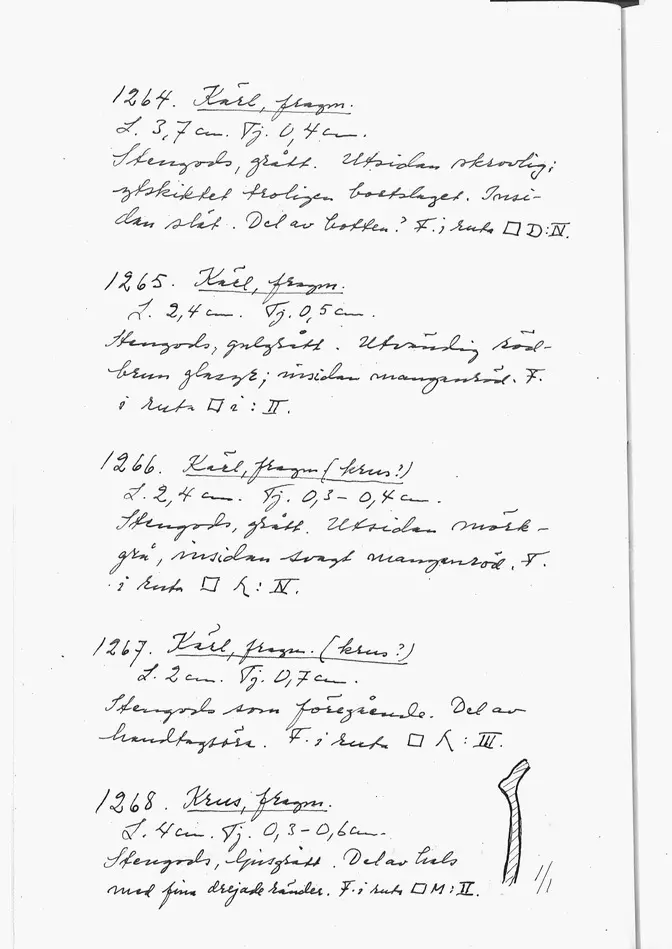 1264. Kärl, fragm.
L. 3,7 cm. Tj. 0,4 cm.
Stengods, grått. Utsidan skrovlig;
ytskiktet troligen bortslaget. Insi-
dan slät. Del av botten? F. i ruta □ D:IV.
1265. Kärl, fragm.
L. 2,4 cm. Tj. 0,5 cm.
Stengods, gulgrått. Utvändig röd-
brun glasyr; insidan manganröd. F.
i ruta □ i : II.
1266. Kärl, fragm (krus?)
L. 2,4 cm. Tj. 0,3 – 0,4 cm.
Stengods, grått. Utsidan mörk-
grå, insidan svagt manganröd. F.
i ruta □ : IV.
1267. Kärl, fragm. (krus?)
L. 2 cm. Tj. 0,7 cm.
Stengods som föregående. Del av
handtagsöra. F. i ruta □ : III.
1268. Krus, fragm.
L. 4 cm. Tj. 0,3 – 0,6 cm.
Stengods, ljusgrått. Del av hals
med fina drejade ränder. F. i ruta □ M : II.
1/1